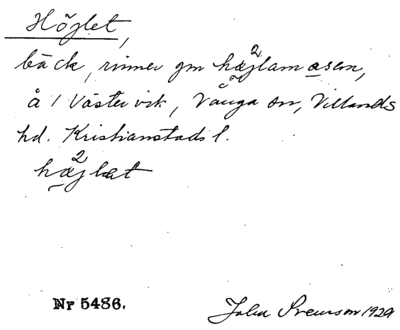 Höjlet,
bäck, rinner gm hö̱jlam a̱sen,
å i Västervik, Vånga sn, Villands
hd. Kristianstads l.
hö̱jlæt
Nr 5486.
John Svensson 1929